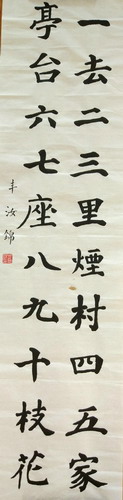 一去二三里煙村四五家
亭台六七座八九十枝花
丰汝錦